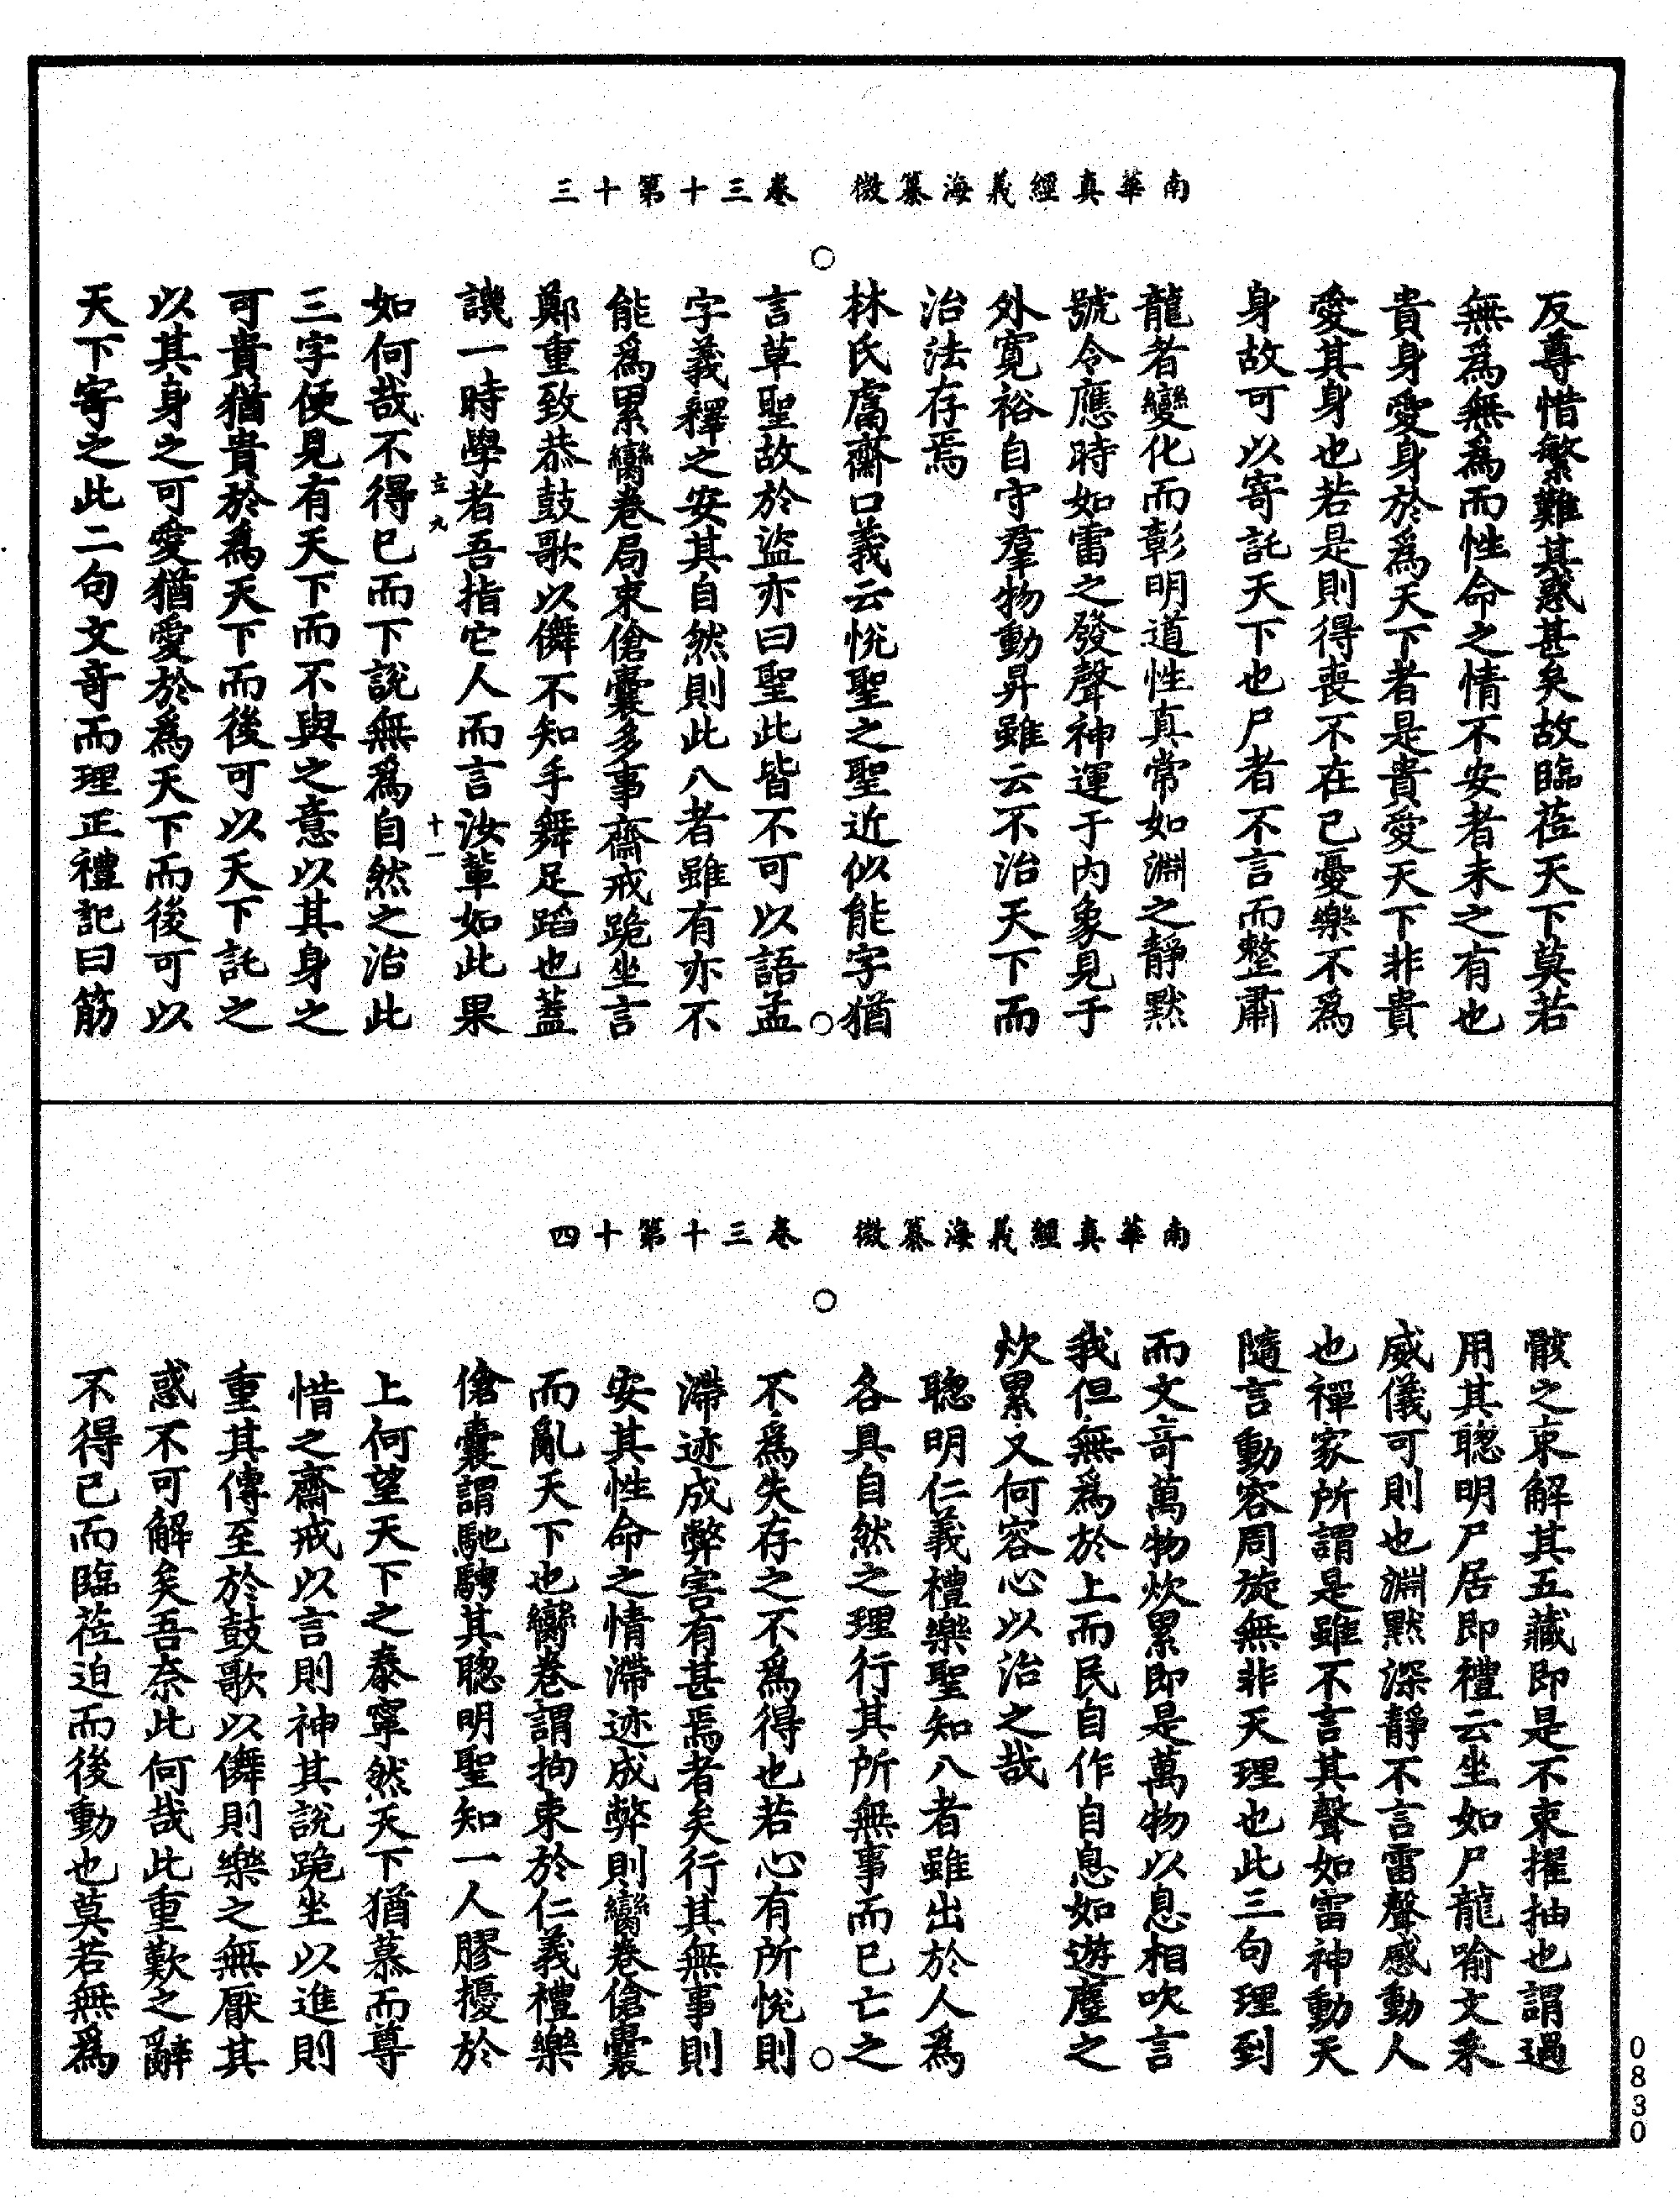 南華真經義海纂微　卷三十第十三
反尊惜繁難其惑甚矣故臨莅天下莫若
無爲無爲而性命之情不安者未之有也
貴身愛身於爲天下者是貴愛天下非貴
愛其身也若是則得喪不在己憂樂不爲
身故可以寄託天下也尸者不言而整肅
龍者變化而彰明道性真常如淵之靜默
號令應時如雷之發聲神運于內象見于
外寬裕自守羣物動昇雖云不治天下而
治法存焉
林氏鬳齋口義云悅聖之聖近似能字猶
言草聖故於盜亦曰聖此皆不可以語孟
字義釋之安其自然則此八者雖有亦不
能爲累臠卷局束傖囊多事齋戒跪坐言
鄭重致恭鼓歌以儛不知手舞足蹈也蓋
譏一時學者吾指它人而言汝輩如此果
立九　十一
如何哉不得已而下說無爲自然之治此
三字便見有天下而不與之意以其身之
可貴猶貴於爲天下而後可以天下託之
以其身之可愛猶愛於爲天下而後可以
天下寄之此二句文奇而理正禮記曰筋
南華真經義海纂微　卷三十第十四
骸之束解其五藏即是不束擢抽也謂過
用其聰明尸居即禮云坐如尸龍喻文采
威儀可則也淵默深靜不言雷聲感動人
也禪家所謂是雖不言其聲如雷神動天
隨言動容周旋無非天理也此三句理到
而文奇萬物炊累即是萬物以息相吹言
我但無爲於上而民自作自息如遊塵之
炊累又何容心以治之哉
聰明仁義禮樂聖知八者雖出於人爲
各具自然之理行其所無事而已亡之
不爲失存之不爲得也若心有所悅則
滯迹成弊害有甚焉者矣行其無事則
安其性命之情滯迹成弊則臠卷傖囊
而亂天下也臠卷謂拘束於仁義禮樂
傖囊謂馳騁其聰明聖知一人膠擾於
上何望天下之泰寧然天下猶慕而尊
惜之齋戒以言則神其說跪坐以進則
重其傳至於鼓歌以儛則樂之無厭其
惑不可解矣吾奈此何哉此重歎之辭
不得已而臨莅迫而後動也莫若無爲
0830